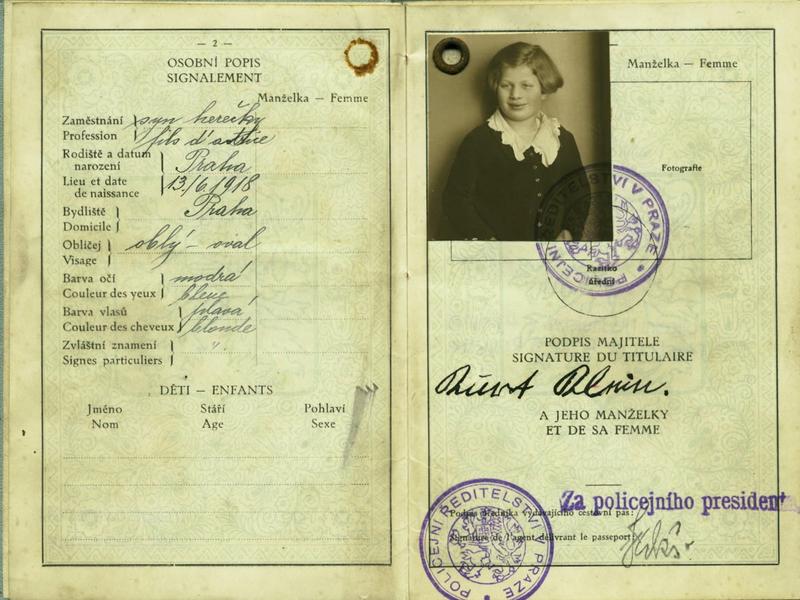 — 2 —
OSOBNÍ POPIS
SIGNALEMENT
Manželka — Femme
Zaměstnání syn herečky
Profession fils d'actrice
Rodiště a datum
narození Praha
Lieu et date
de naissance 13./6. 1918
Bydliště Praha
Domicile
Obličej oblý – oval
Visage
Barva očí modrá
Couleur des yeux bleue
Barva vlasů plavá
Couleur des cheveux blonde
Zvláštní znamení
Signes particuliers
DĚTI — ENFANTS
Jméno Stáří Pohlaví
Nom Age Sexe
Manželka — Femme
Fotografie
POLICEJNÍ ŘEDITELSTVÍ V PRAZE
Razítko
úřední
PODPIS MAJITELE
SIGNATURE DU TITULAIRE
Kurt
A JEHO MANŽELKY
ET DE SA FEMME
Za policejního president
Podpis úředníka vydávajícího cestovní pas:
Signature de l'agent délivrant le passeport:
POLICEJNÍ ŘEDITELSTVÍ V PRAZE